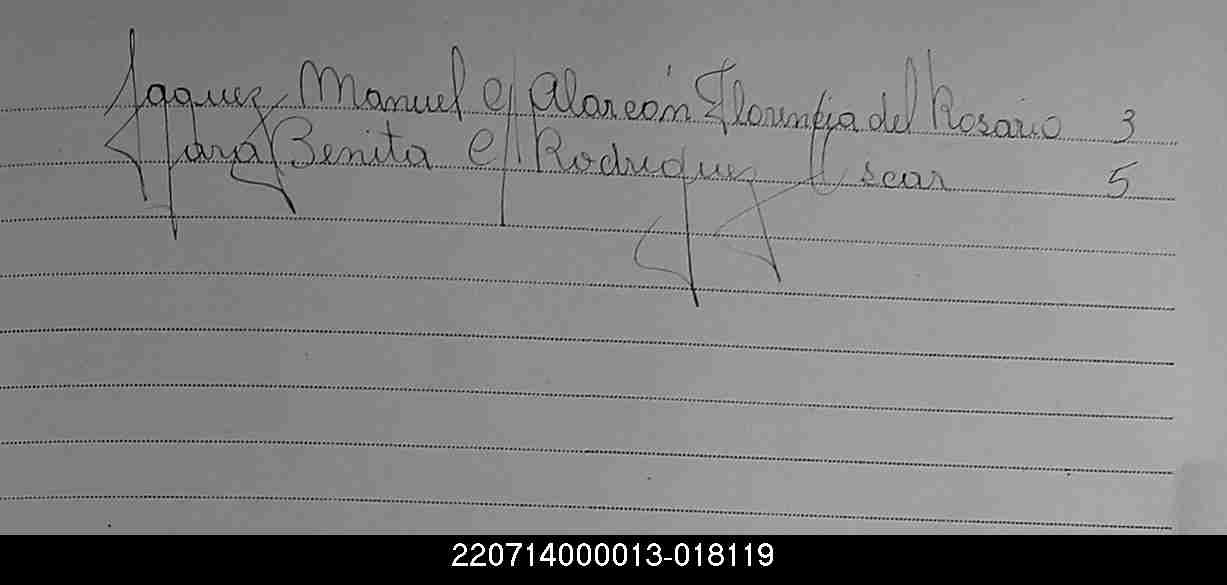 Jaquez, Manuel c/ Alarcón Florencia del Rosario 3
Jara Benita c/ Rodriguez Oscar 5
220714000013-018119